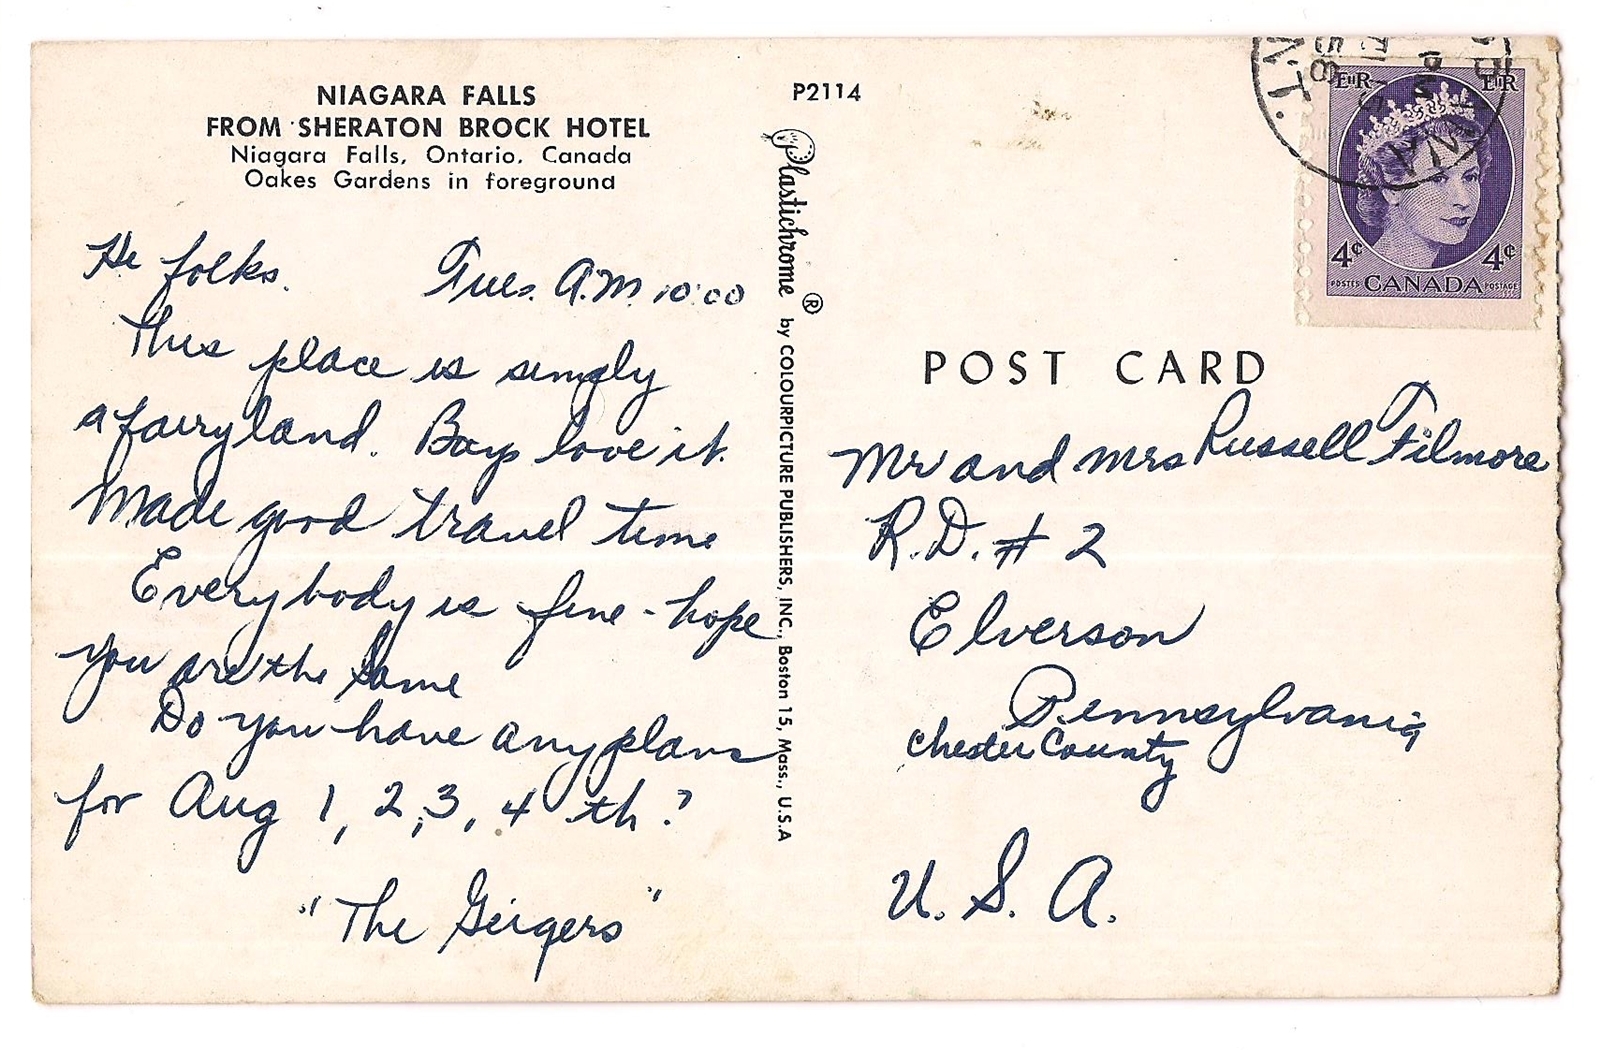 NIAGARA FALLS
FROM SHERATON BROCK HOTEL
Niagara Falls, Ontario, Canada
Oakes Gardens in foreground
He folks. Tues. A.M. 10:00
This place is simply
a fairyland. Boys love it.
Made good travel time
Everybody is fine - hope
you are the same
Do you have any plans
for Aug 1, 2, 3, 4 th?
"The Geigers"
Plastichrome ® by COLOURPICTURE PUBLISHERS, INC., Boston 15, Mass., U.S.A
P2114
EIIR EIIR
4¢ 4¢
POSTES CANADA POSTAGE
N.T.
POST CARD
Mr and Mrs Russell Filmore
R.D. # 2
Elverson
Pennsylvania
Chester County
U. S. A.